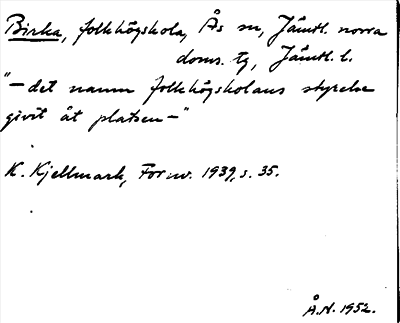 Birka, folkhögskola, Ås sn, Jämtl. norra
doms. tg, Jämtl. l.
"—det namn folkhögskolans styrelse
givit åt platsen—"
K. Kjellmark, Fornv. 1939, s. 35.
Å.N. 1952.